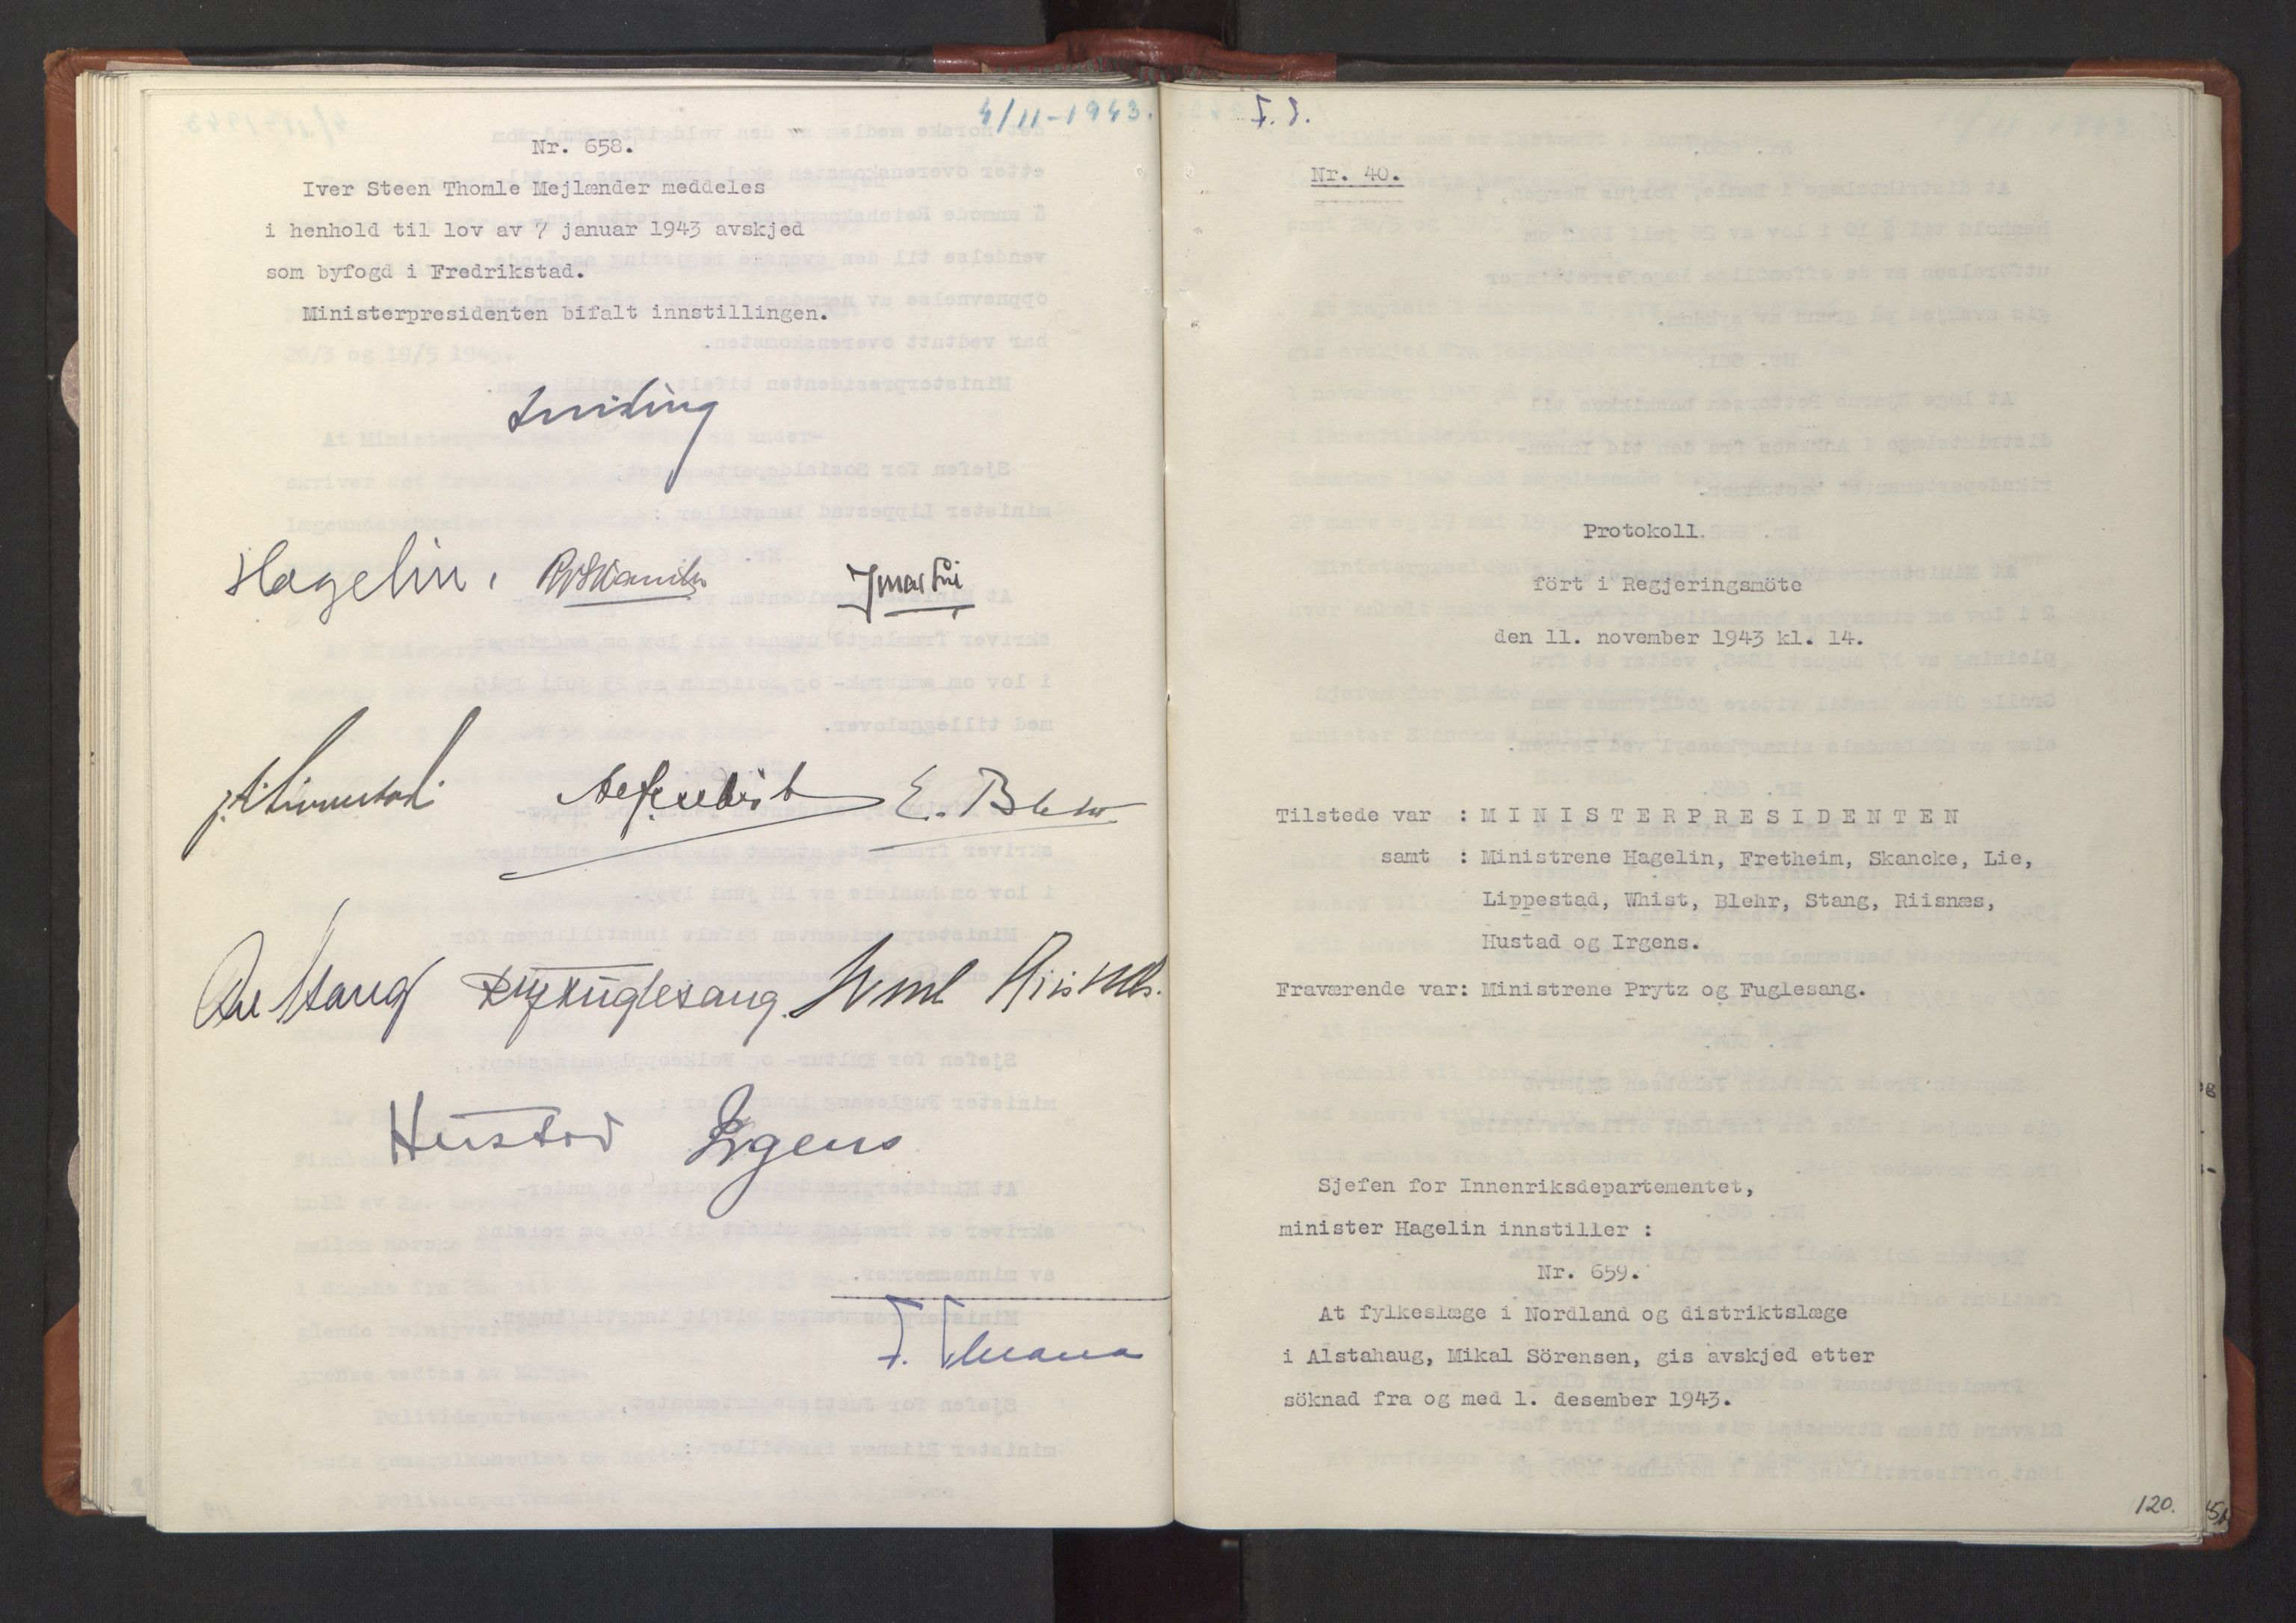 4/11-1943.
Nr. 658.
Iver Steen Thomle Mejlænder meddeles
i henhold til lov av 7 januar 1943 avskjed
som byfogd i Fredrikstad.
Ministerpresidenten bifalt innstillingen.
Hagelin.
E. Blehr
Stang Fuglesang. Riisnæs.
Hustad Irgens
F.
F. S.
Nr. 40.
Protokoll
fört i Regjeringsmöte
den 11. november 1943 kl. 14.
Tilstede var : MINISTERPRESIDENTEN
samt : Ministrene Hagelin, Fretheim, Skancke, Lie,
Lippestad, Whist, Blehr, Stang, Riisnæs,
Hustad og Irgens.
Fraværende var: Ministrene Prytz og Fuglesang.
Sjefen for Innenriksdepartementet,
minister Hagelin innstiller :
Nr. 659.
At fylkeslæge i Nordland og distriktslæge
i Alstahaug, Mikal Sörensen, gis avskjed etter
söknad fra og med 1. desember 1943.
120.